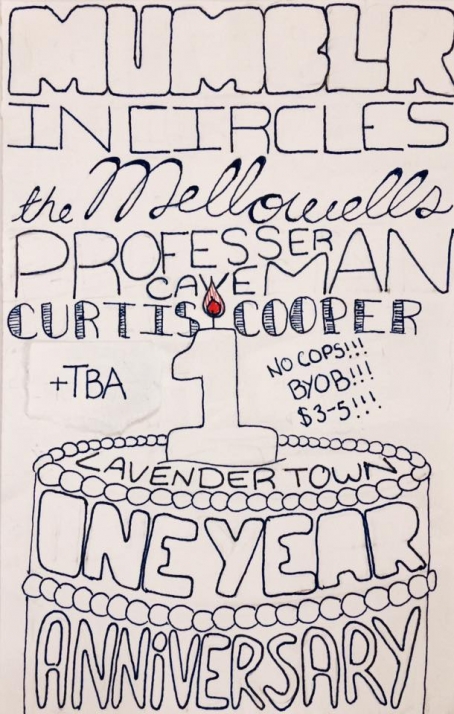 MUMBLR
IN CIRCLES
the Mellowells
PROFESSER
CAVEMAN
CURTIS COOPER
+TBA
1
NO COPS!!!
BYOB!!!
$3-5!!!
LAVENDER TOWN
ONE YEAR
ANNIVERSARY